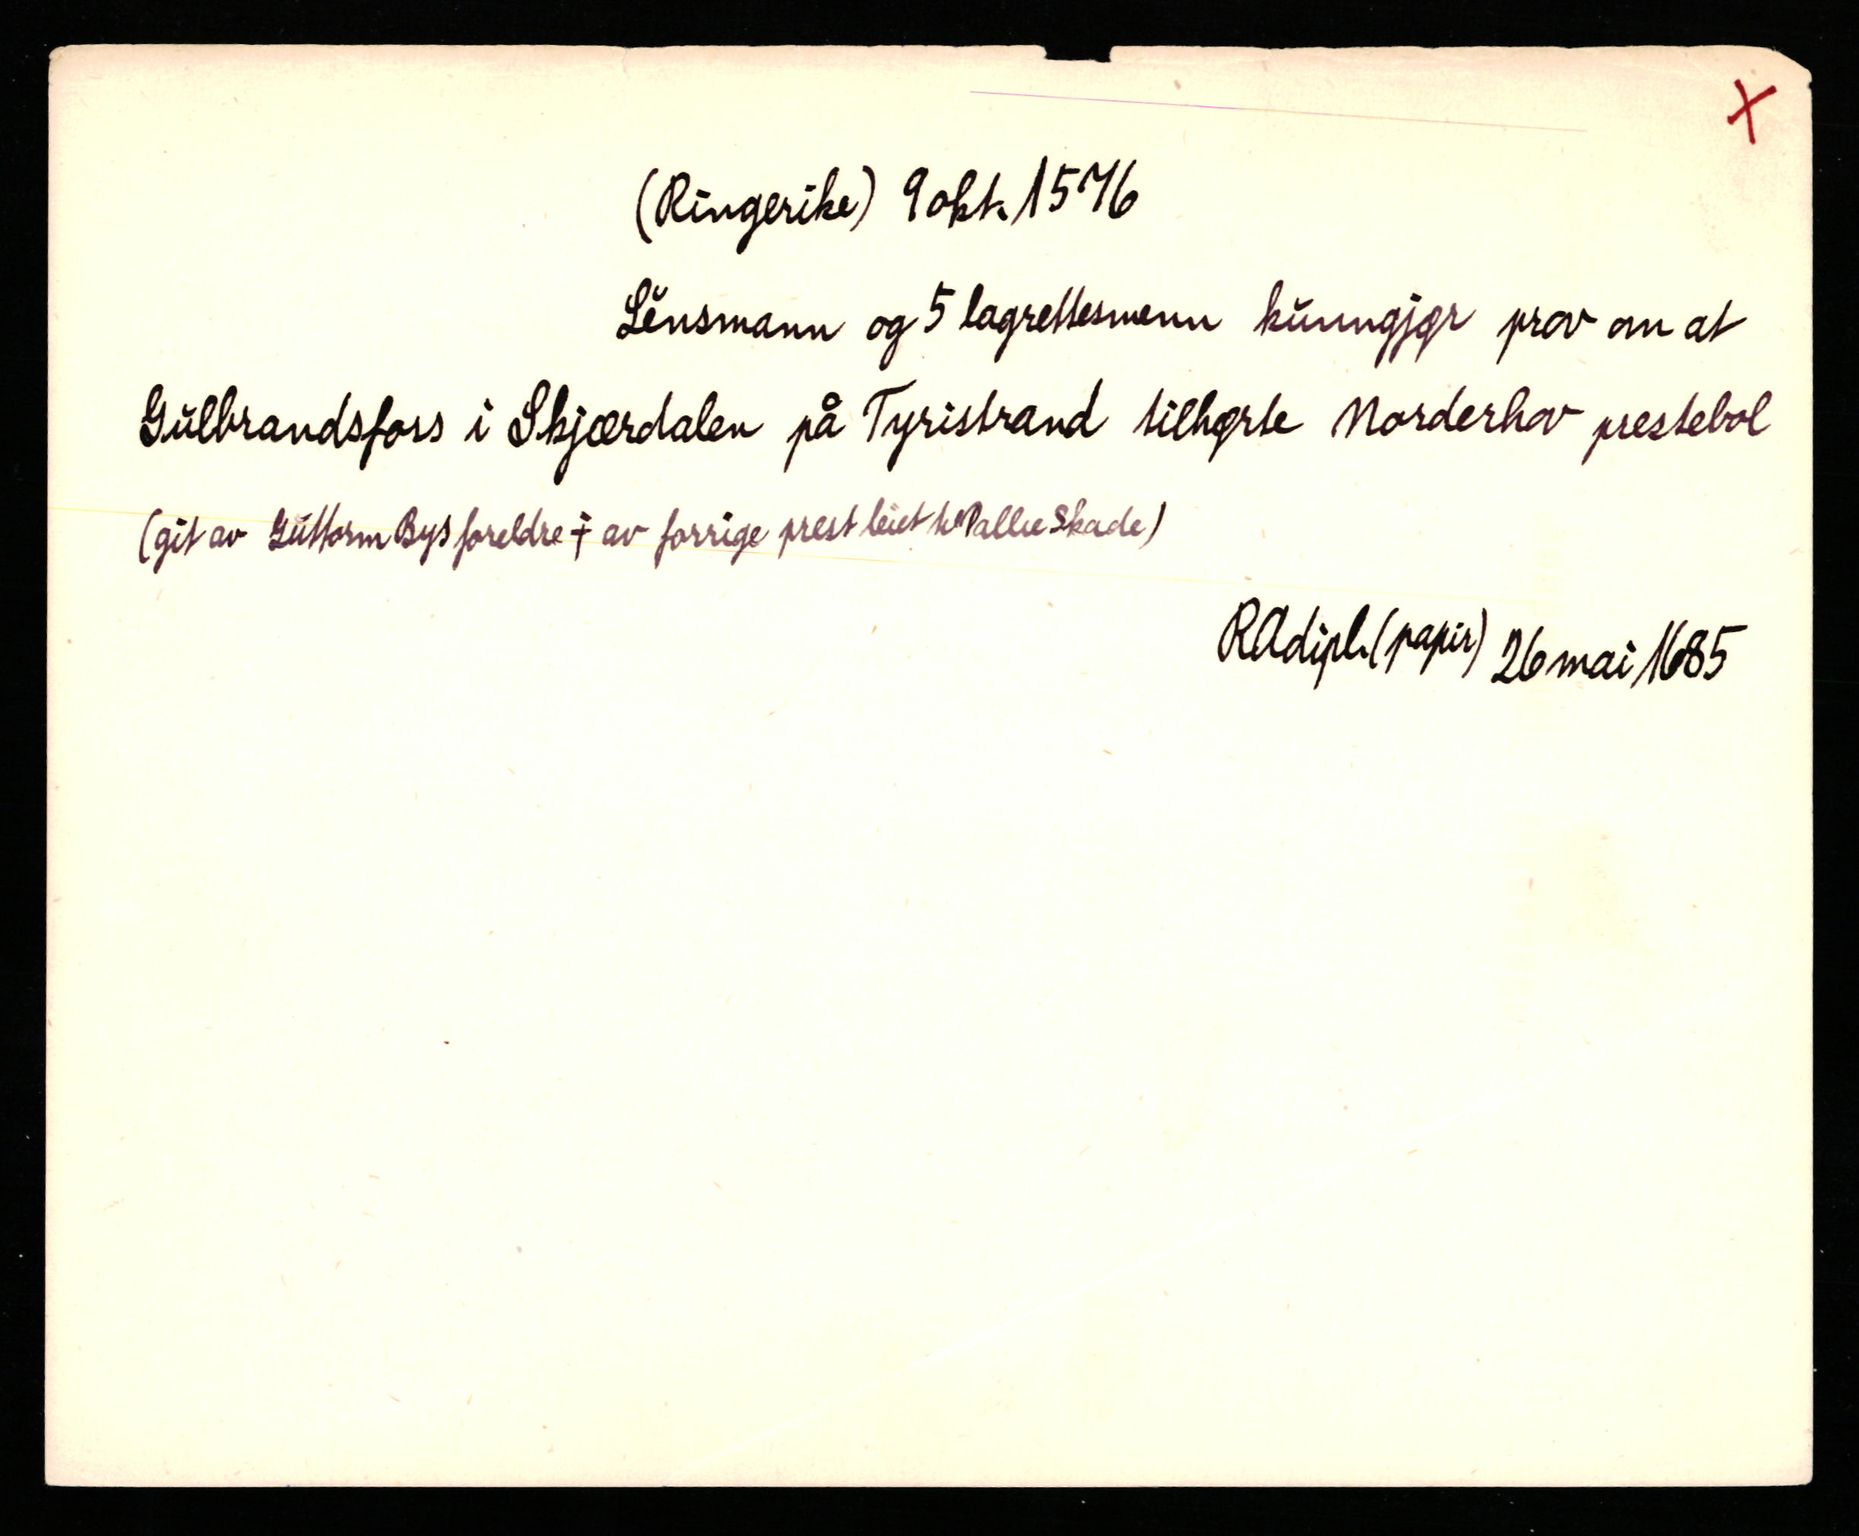 X
(Ringerike) 9 okt. 1576
Lensmann og 5 lagrettesmenn kunngjør prov om at
Gulbrandsfoss i Skjærdalen på Tyristrand tilhørte Norderhov prestebol
(git av Guttorm Bys foreldre + av forrige prest leiet Pallie Skade)
RAdipl. (papir) 26 mai 1685